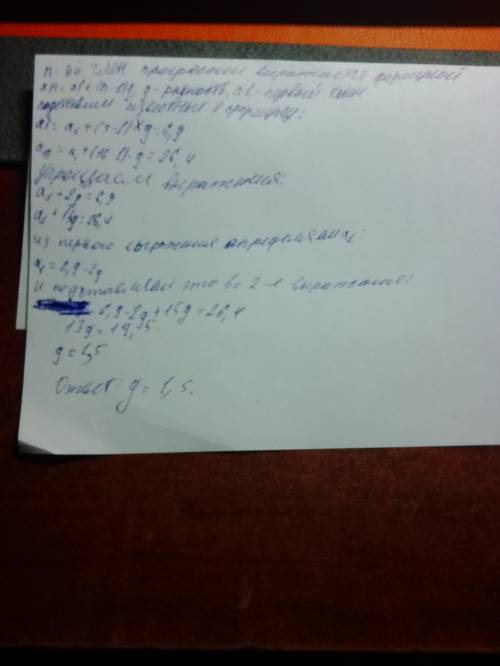 n-ый член прогрессии выражается формулой
an = a1 + (n-1)g, g - разность, a1 - первый член
подставим известные в формулу:
a3 = a1 + (3-1)*g = 6,9
a16 = a1 + (16-1)·g = 26,4
Упрощаем выражения:
a1 + 2g = 6,9
a1 + 15g = 26,4
из первого выражения определяем a1:
a1 = 6,9-2g
и подставляем это во 2-е выражение:
6,9-2g + 15g = 26,4
13g = 19,5
g = 1,5
Ответ: g = 1,5.